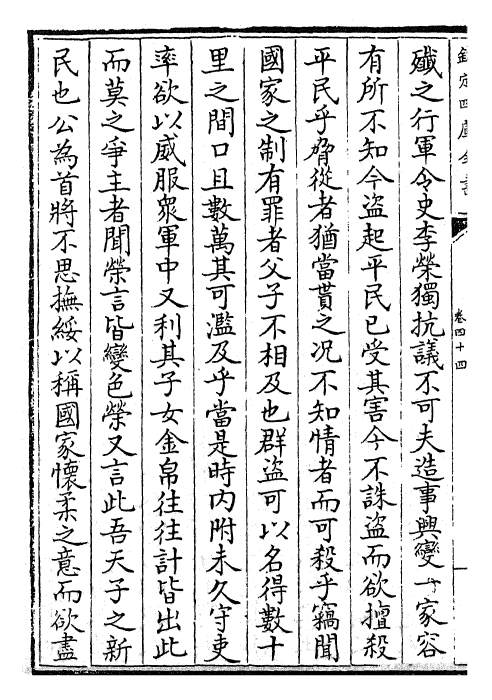 欽定四庫全書
卷四十四
殲之行軍令史李榮獨抗議不可夫造事興變一家容
有所不知今盜起平民已受其害今不誅盜而欲擅殺
平民乎脅從者猶當貰之况不知情者而可殺乎竊聞
國家之制有罪者父子不相及也群盜可以名得數十
里之間口且數萬其可濫及乎當是時内附未久守吏
率欲以威服衆軍中又利其子女金帛往往計皆出此
而莫之爭主者聞榮言皆變色榮又言此吾天子之新
民也公為首將不思撫綏以稱國家懷柔之意而欲盡